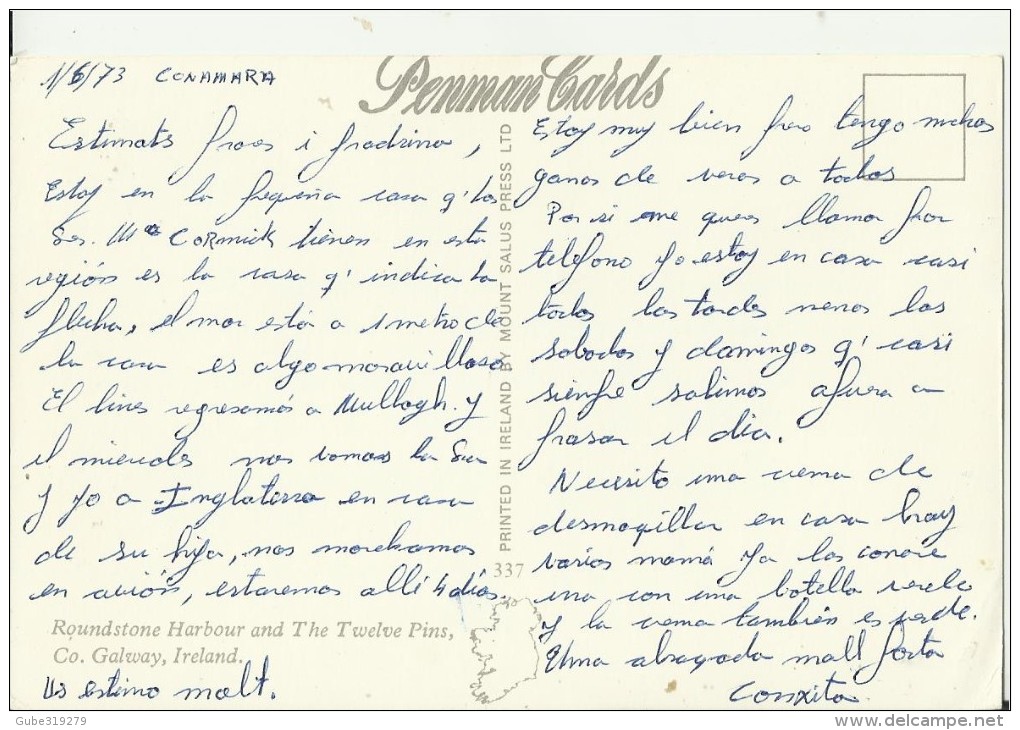 1/6/73 CONAMARA
Penman Cards
Estimats pares i padrina,
Estoy en la pequeña casa q' los
Srs. Mc CORMICK tienen en esta
región es la casa q' indica la
flecha, el mar está a 1 metro de
la casa es algo maravilloso
El lunes regresamos a Mullagh. y
el miercoles nos vamos la Sra
y yo a Inglaterra en casa
de su hija, nos marchamos
en avión, estaremos allí 4 días.
Roundstone Harbour and The Twelve Pins,
Co. Galway, Ireland.
Us estimo molt.
337 PRINTED IN IRELAND BY MOUNT SALUS PRESS LTD
Estoy muy bien pero tengo muchas
ganas de veros a todos
Por si me queres llamar por
telefono yo estoy en casa casi
todas las tardes menos los
sabados y domingos q' casi
siempre salimos afuera a
pasar el dia.
Necesito una crema de
desmaquillar en casa hay
varias mamá ya las conoce
una con una botella verde
y la crema también es verde.
Una abraçada molt forta
Conxita
Gube319279
www.delcampe.net